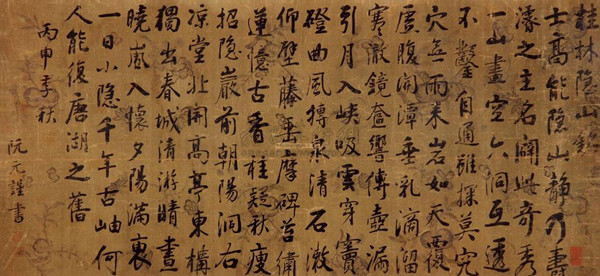 桂林隐山銘
士高能隐山静乃壽
濬之主名闢此奇秀
一山盡空六洞互透
不鑿自通雖探莫究
穴無雨来岩如天覆
虛腹開潭垂乳滴溜
寒澈鏡奩響傳壺漏
引月入峡吸雲穿竇
磴曲風摶泉清石漱
仰壁藤垂摩碑苔繡
蓮憶古香桂疑秋瘦
招隐巖前朝陽洞右
凉堂北開高亭東構
獨出春城清游晴晝
曉嵐入懷夕陽滿褎
一日小隐千年古岫何
人能復唐湖之舊
丙申季秋
阮元謹書